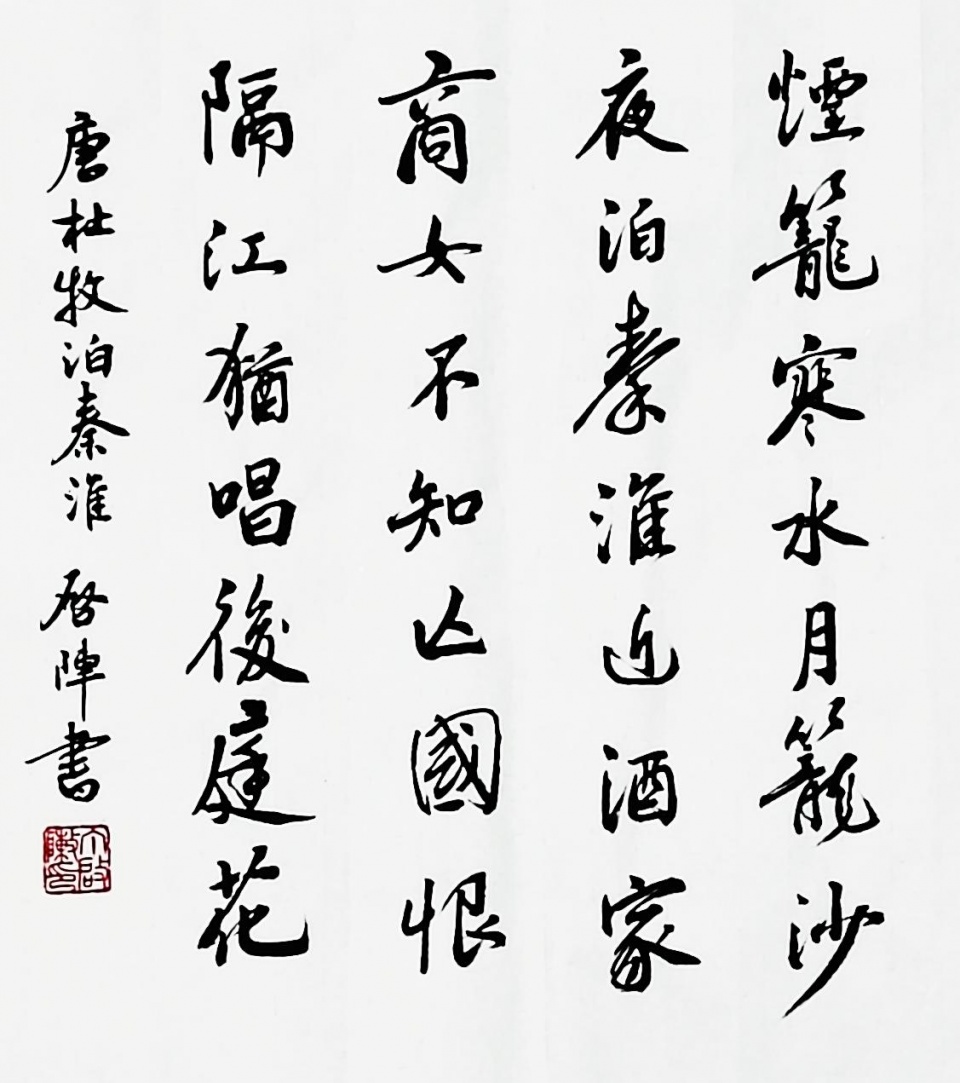 煙籠寒水月籠沙
夜泊秦淮近酒家
商女不知亡國恨
隔江猶唱後庭花
唐杜牧泊秦淮 啓陣書